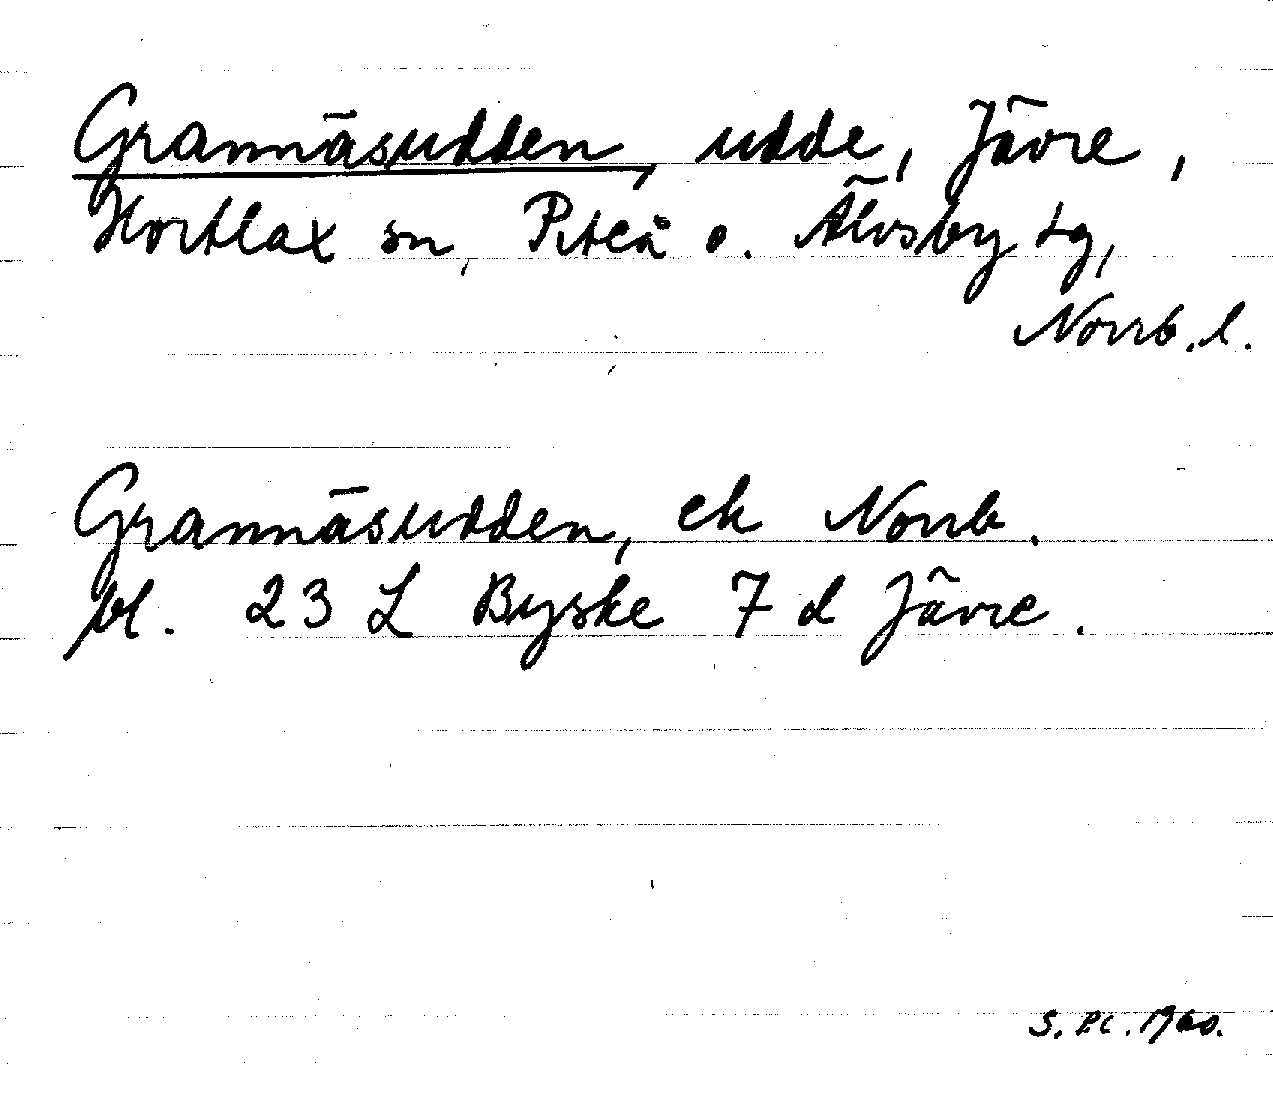 Grannäsudden, udde, Jävre,
Hortlax sn, Piteå o. Älvsby tg,
Norrb. l.
Grannäsudden, ek Norrb.
bl. 23 L Byske 7 d Jävre.
S. P.C. 1960.